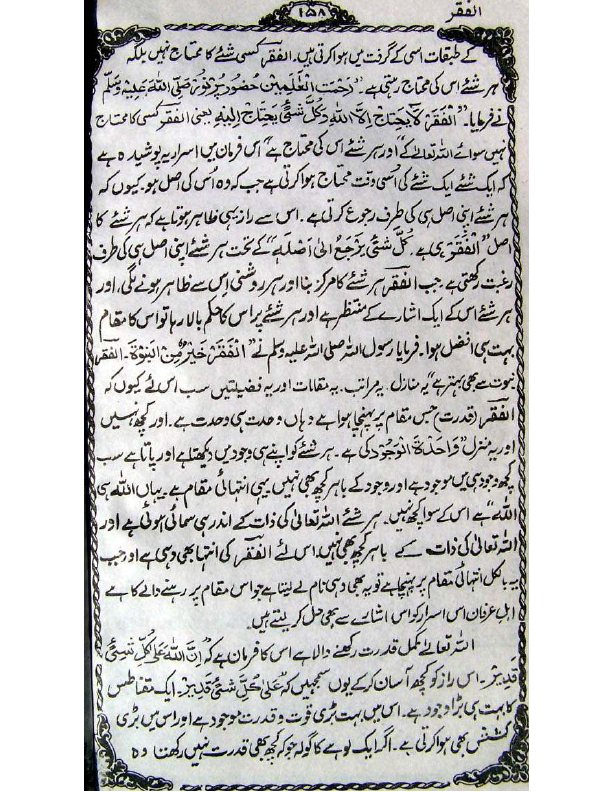 الفقر
۱۵۸
کے طبقات اسی کے گرفت میں ہوا کرتی ہیں. الفقر کسی شئے کا محتاج نہیں بلکہ
ہر شئے اس کی محتاج رہتی ہے۔ رحمت العلمین حضور پرنور صلی اللہ علیہ وسلم
نے فرمایا۔ "الفقر لا یحتاج الا اللہ وکل شئی یحتاج الیہ یعنی الفقر کسی کا محتاج
نہیں سوائے اللہ تعالیٰ کے" اور ہر شئے اس کی محتاج ہے" اس فرمان میں اسرار یہ پوشیدہ ہے
کہ ایک شئے ایک شئے کی اسی وقت محتاج ہوا کرتی ہے جب کہ وہ اس کی اصل ہو. کیوں کہ
ہر شئے اپنی اصل ہی کی طرف رجوع کرتی ہے۔ اس سے راز یہی ظاہر ہوتا ہے کہ ہر شئے کا
اصل "الفقر ہی ہے، کل شئی یرجع الیٰ اصلہ" کے تحت ہر شئے اپنی اصل ہی کی طرف
رغبت رکھتی ہے. جب الفقر ہر شئے کا مرکز بنا اور ہر روشنی اس سے ظاہر ہونے لگی، اور
ہر شئے اس کے ایک اشارے کے منتظر ہے اور ہر شئے پر اس کا حکم بالا رہا تو اس کا مقام
بہت ہی افضل ہوا. فرمایا رسول اللہ صلی اللہ علیہ وسلم نے "الفقر خیر من النبوۃ۔ الفقر
نبوت سے بھی بہتر ہے" یہ منازل یہ مراتب. یہ مقامات اور یہ فضیلتیں سب اس لئے کیوں کہ
الفقر (قدرت) جس مقام پر پہنچا ہوا ہے وہاں وحدت ہی وحدت ہے. اور کچھ نہیں
اور یہ منزل "واحدۃ الوجود کی ہے. ہر شئے کو اپنے ہی وجود میں دیکھتا ہے اور پاتا ہے سب
کچھ وجود ہی میں موجود ہے اور وجود کے باہر کچھ بھی نہیں. یہی انتہائی مقام ہے. یہاں اللہ ہی
اللہ" ہے اس کے سوا کچھ نہیں. ہر شئے اللہ تعالیٰ کی ذات کے اندر ہی سمائی ہوئی ہے اور
اللہ تعالیٰ کی ذات کے باہر کچھ بھی نہیں. اس لئے الفقر کی انتہا بھی وہی ہے اور جب
یہ بالکل انتہائی مقام پر پہنچا ہے تو یہ بھی وہی نام لے لیتا ہے جو اس مقام پر رہنے والے کا ہے
اہل عرفان اس اسرار کو اس اشارے سے بھی حل کر لیتے ہیں.
اللہ تعالیٰ مکمل قدرت رکھنے والا ہے اس کا فرمان ہے کہ "ان اللہ علیٰ کل شئی
قدیر۔ اس راز کو کچھ آسان کر کے یوں سمجھیں کہ "علیٰ کل شئی قدیر۔ ایک مقناطیس
کا بہت ہی بڑا وجود ہے. اس میں بہت بڑی قوت و قدرت موجود ہے اور اس میں بڑی
کشش بھی ہوا کرتی ہے. اگر ایک لوہے کا گولہ جو کہ کچھ بھی قدرت نہیں رکھتا وہ